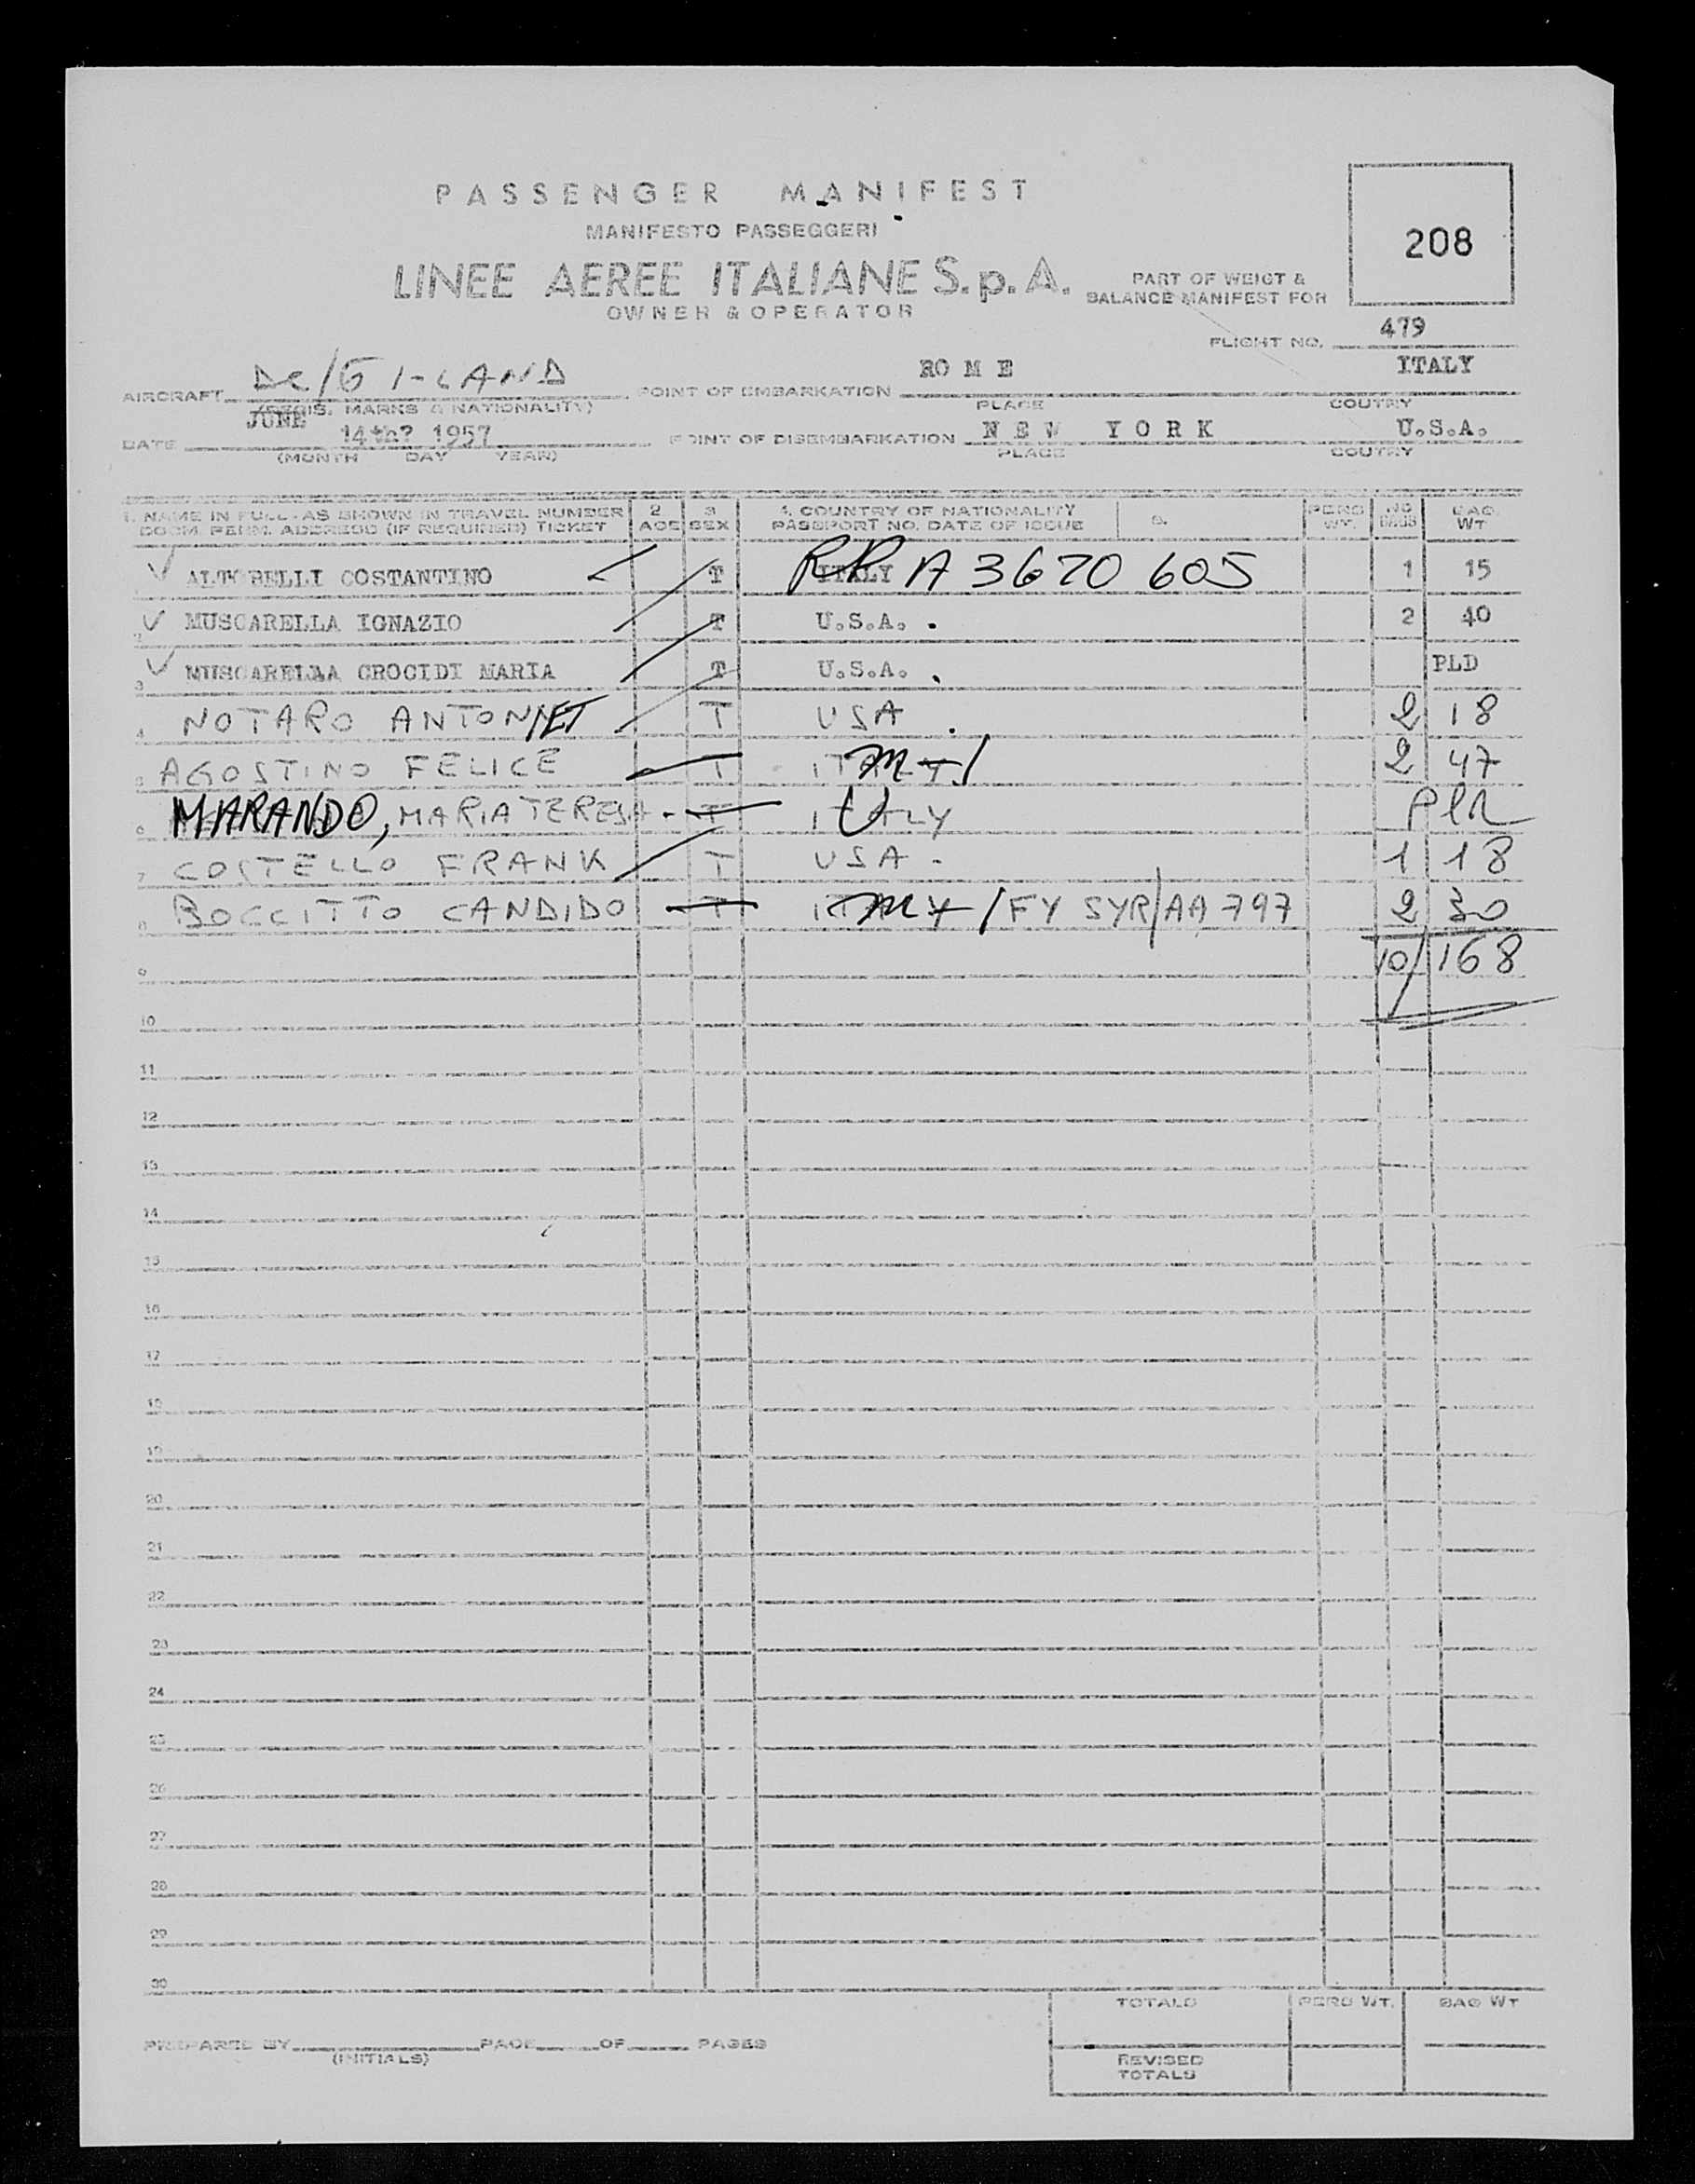 PASSENGER MANIFEST
MANIFESTO PASSEGGERI
208
LINEE AEREE ITALIANE S.p.A.
PART OF WEIGT &
BALANCE MANIFEST FOR
OWNER & OPERATOR
FLIGHT NO. 479
AIRCRAFT DC/6 I-LAND POINT OF EMBARKATION ROME ITALY
(REGIS. MARKS & NATIONALITY) PLACE COUTRY
DATE JUNE 14th? 1957 POINT OF DISEMBARKATION NEW YORK U.S.A.
(MONTH DAY YEAR) PLACE COUTRY
1. NAME IN FULL-AS SHOWN IN TRAVEL NUMBER 2 3 4. COUNTRY OF NATIONALITY 5. PERS NO BAG.
DOCM. PERM. ADDRESS (IF REQUIRED) TICKET AGE SEX PASSPORT NO. DATE OF ISSUE WT. BAGS WT
1 ALTOBELLI COSTANTINO T ITALY A 3670 605 1 15
2 MUSCARELLA IGNAZIO T U.S.A. 2 40
3 MUSCARELLA CROCIDI MARIA T U.S.A. PLD
4 NOTARO ANTONNET T USA 2 18
5 AGOSTINO FELICE T ITALY 2 47
6 MARANDO, MARIA TERESA T ITALY
7 COSTELLO FRANK T USA 1 18
8 BOCCITTO CANDIDO T ITALY /FY SYR/AA 797 2 30
9 10/ 168
10
11
12
13
14
15
16
17
18
19
20
21
22
23
24
25
26
27
28
29
30
TOTALS PERS WT. BAG WT
PREPARED BY PAGE OF PAGES
(INITIALS)
REVISED
TOTALS